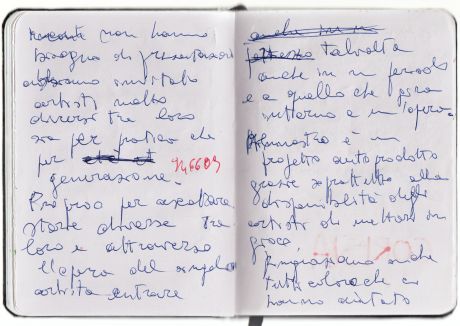 non hanno
bisogno di presentazioni
abbiamo invitato
artisti molto
diversi tra loro
sia per pratica che
per
generazione.
Proprio per ascoltare
storie diverse tra
loro e attraverso
l'opera del singolo
artista entrare
anche in un
talvolta
anche in un periodo
e a quello che gira
intorno a un'opera.
è un
progetto autoprodotto
grazie soprattutto alla
disponibilità degli
artisti di mettersi in
gioco,
Ringraziamo anche
tutti coloro che ci
hanno aiutato